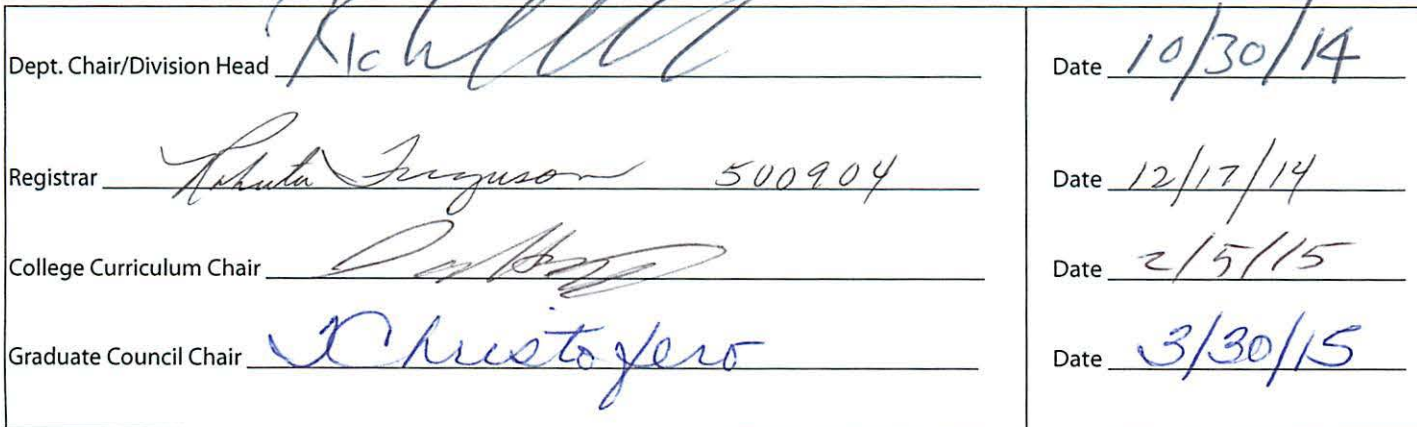 Dept. Chair/Division Head Date 10/30/14
Registrar Ferguson 500904 Date 12/17/14
College Curriculum Chair Date 2/5/15
Graduate Council Chair Christofero Date 3/30/15